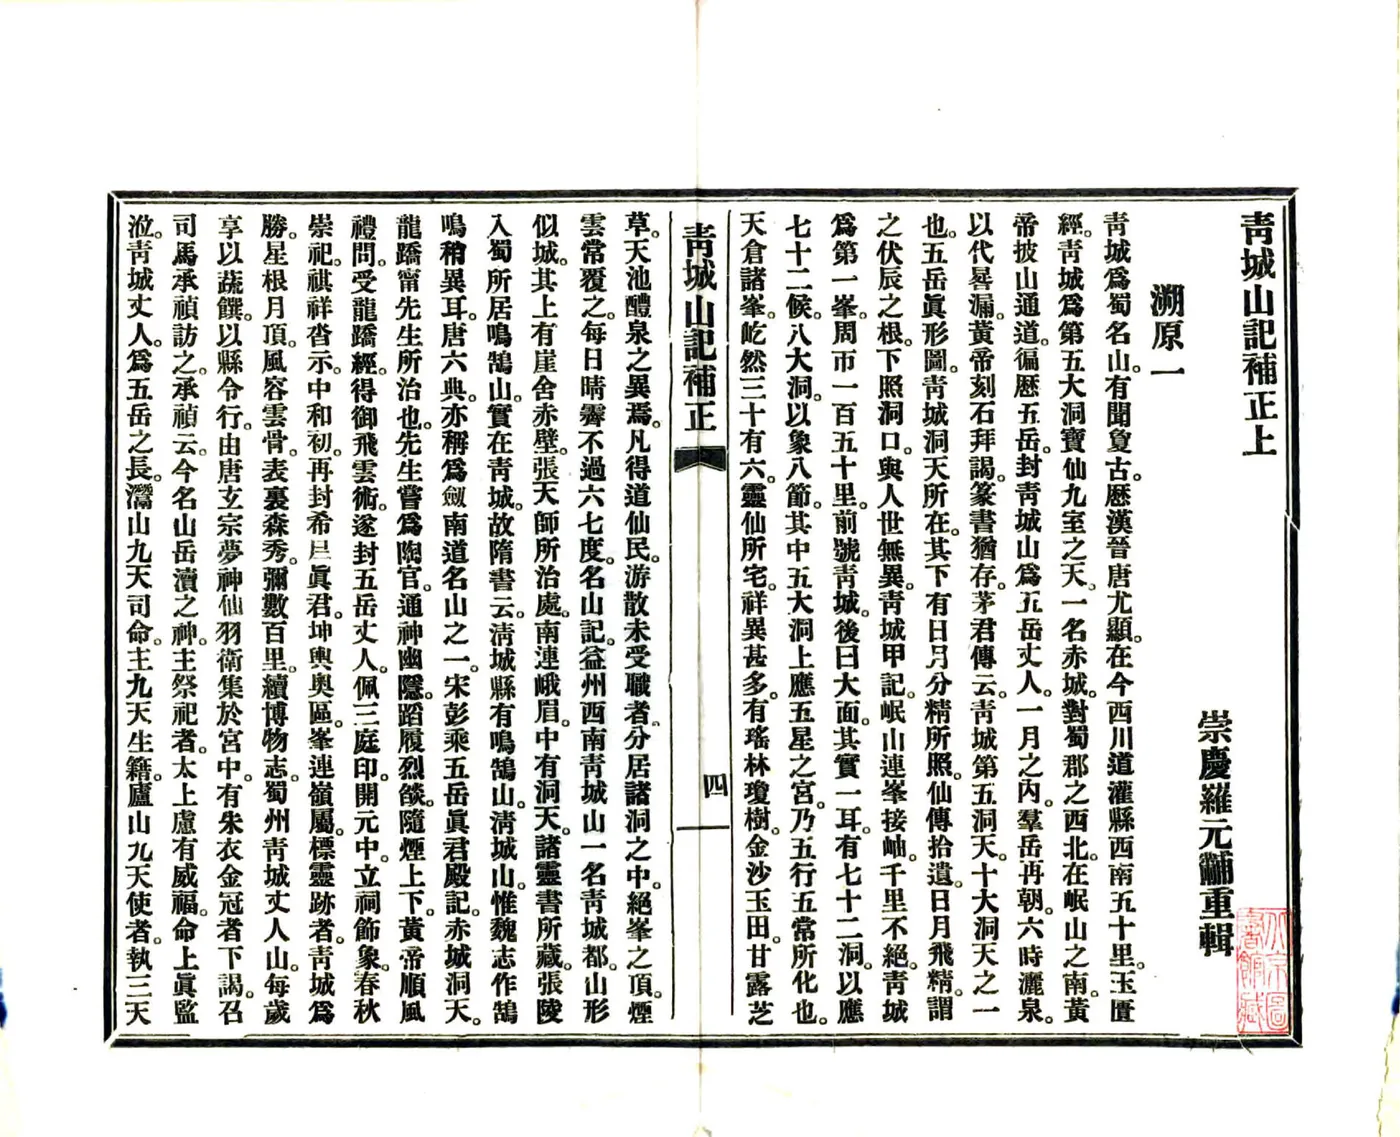 靑城山記補正上
崇慶羅元黼重輯
溯原一
靑城爲蜀名山。有聞夐古。歷漢晉唐尤顯。在今西川道灌縣西南五十里。玉匱
經。靑城爲第五大洞寶仙九室之天。一名赤城。對蜀郡之西北。在岷山之南。黃
帝披山通道。徧歷五岳。封靑城山爲五岳丈人。一月之內。羣岳再朝。六時灑泉。
以代晷漏。黃帝刻石拜謁。篆書猶存。茅君傳云。靑城第五洞天。十大洞天之一
也。五岳眞形圖。靑城洞天所在。其下有日月分精所照。仙傳拾遺。日月飛精。謂
之伏辰之根。下照洞口。與人世無異。靑城甲記。岷山連峯接岫。千里不絕。靑城
爲第一峯。周帀一百五十里。前號靑城。後曰大面。其實一耳。有七十二洞。以應
七十二候。八大洞。以象八節。其中五大洞上應五星之宮。乃五行五常所化也。
天倉諸峯。屹然三十有六。靈仙所宅。祥異甚多。有瑤林瓊樹。金沙玉田。甘露芝
靑城山記補正
四
草。天池醴泉之異焉。凡得道仙民。游散未受職者。分居諸洞之中。絕峯之頂。煙
雲常覆之。每日晴霽不過六七度。名山記。益州西南靑城山一名靑城都。山形
似城。其上有崖舍赤壁。張天師所治處。南連峨眉。中有洞天。諸靈書所藏。張陵
入蜀所居鳴鵠山。實在靑城。故隋書云。淸城縣有鳴鵠山。淸城山。惟魏志作鵠
鳴稍異耳。唐六典。亦稱爲劔南道名山之一。宋彭乘五岳眞君殿記。赤城洞天。
龍蹻甯先生所治也。先生嘗爲陶官。通神幽隱。蹈履烈燄。隨煙上下。黃帝順風
禮問。受龍蹻經。得御飛雲術。遂封五岳丈人。佩三庭印。開元中。立祠飾象。春秋
崇祀。祺祥沓示。中和初。再封希夷眞君。坤輿奧區。峯連嶺屬。標靈跡者。靑城爲
勝。星根月頂。風容雲骨。表裏森秀。彌數百里。續博物志。蜀州靑城丈人山。每歲
享以蔬饌。以縣令行。由唐玄宗夢神仙羽衛集於宮中。有朱衣金冠者下謁。召
司馬承禎訪之。承禎云。今名山岳瀆之神。主祭祀者。太上慮有威福。命上眞監
涖。靑城丈人。爲五岳之長。灊山九天司命。主九天生籍。廬山九天使者。執三天